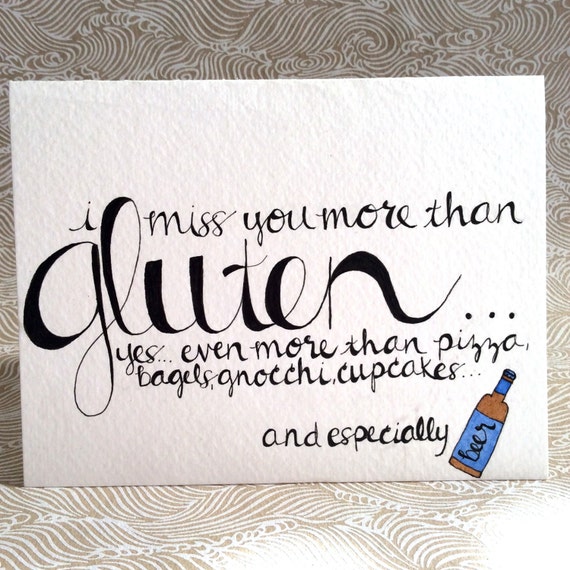 i miss you more than
gluten...
yes... even more than pizza,
bagels, gnocchi, cupcakes...
and especially
beer